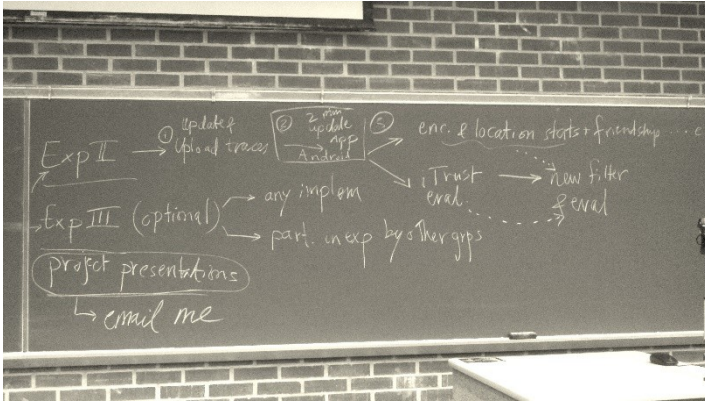 Exp II → ① Update & Upload traces
② 2 min update app Android
③ enc. & location stats + friendship ....
Trust eval → new filter & eval
Exp III (optional) → any implem
→ part. in exp by other grps
project presentations
↳ email me